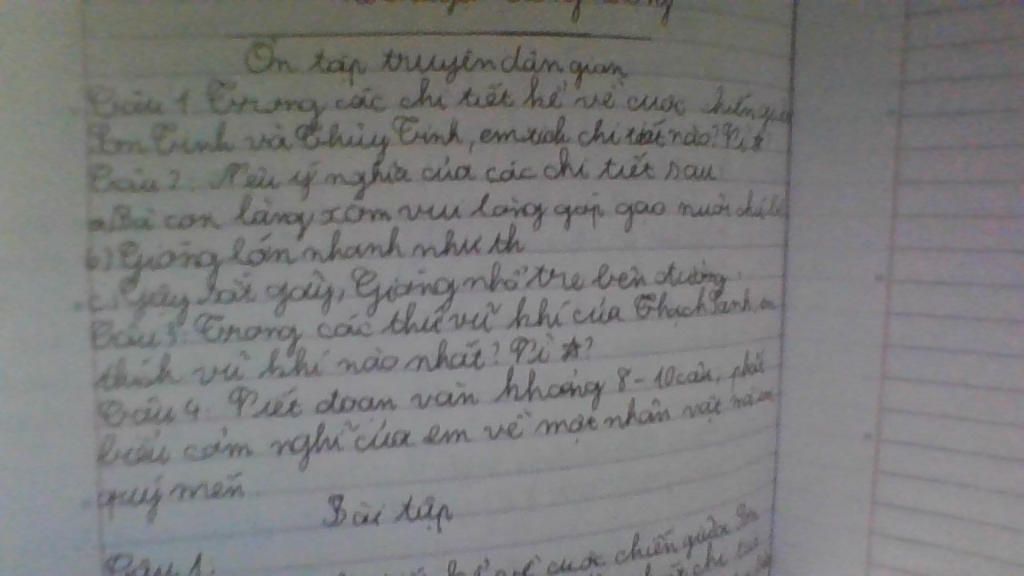 Ôn tập truyện dân gian
Câu 1. Trong các chi tiết kể về cuộc chiến giữa
Sơn Tinh và Thủy Tinh, em thích chi tiết nào? Vì
Câu 2. Nêu ý nghĩa của các chi tiết sau:
a. Bà con làng xóm vui lòng góp gạo nuôi
b) Gióng lớn nhanh như th
c. Gậy sắt gãy, Gióng nhổ tre bên đường
Câu 3. Trong các thứ vũ khí của Thạch Sanh, em
thích vũ khí nào nhất? Vì
Câu 4. Viết đoạn văn khoảng 8-10 câu, phát
biểu cảm nghĩ của em về một nhân vật
quý mến.
Bài tập
Câu 1.
về cuộc chiến giữa Sơn
chi tiết